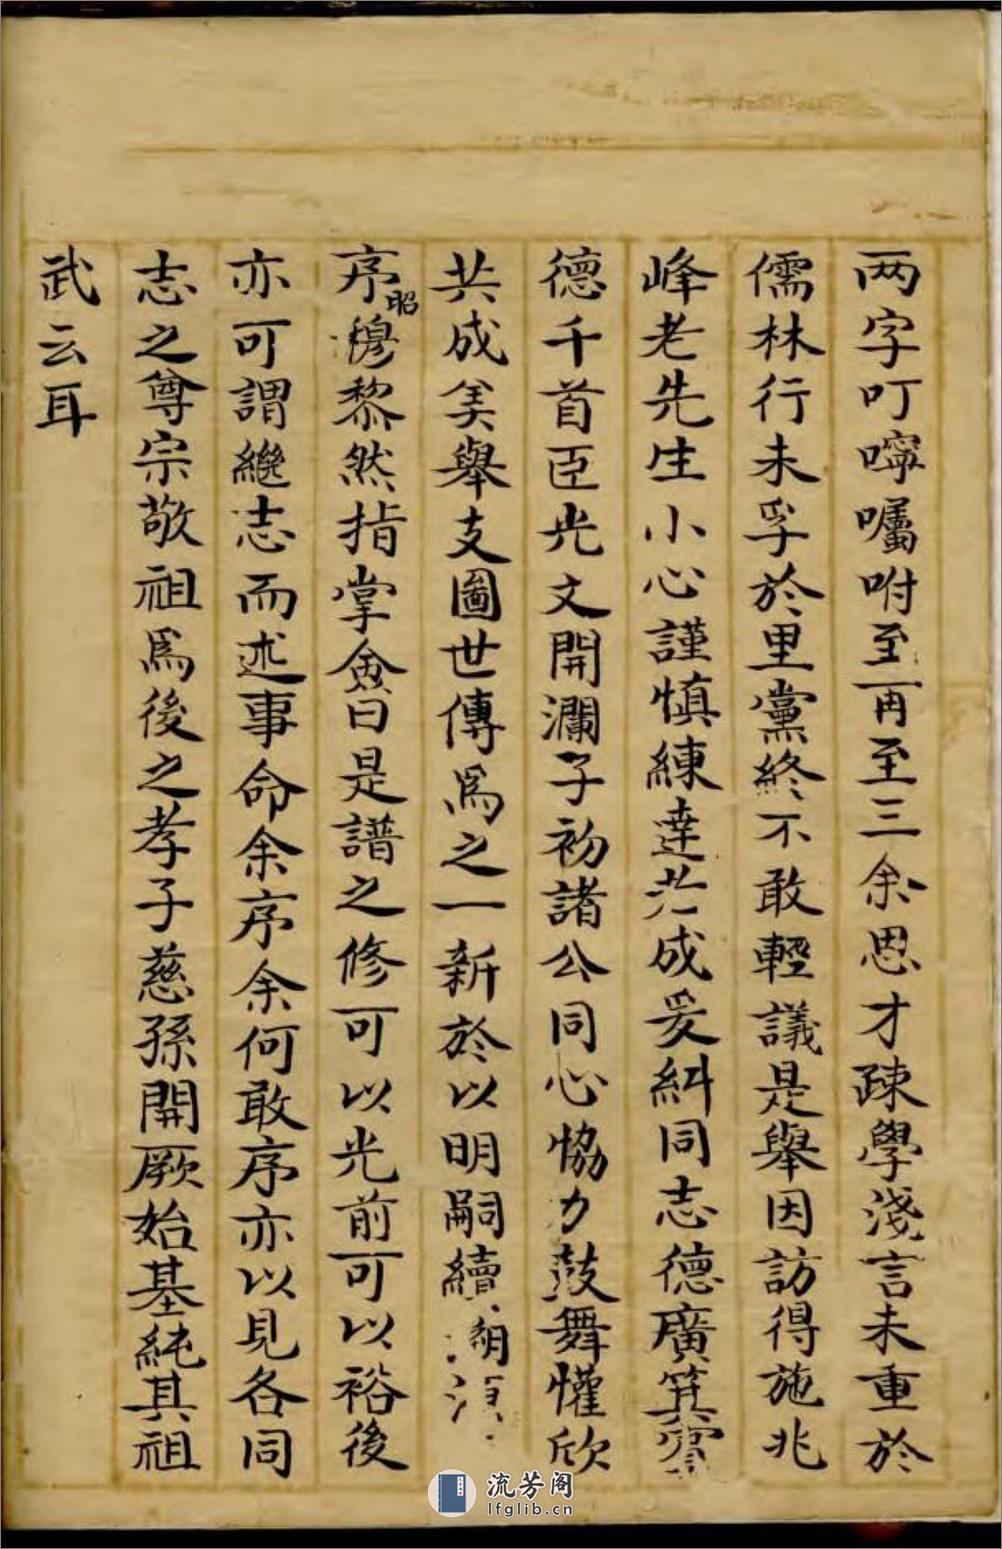 两字叮嚀囑咐至再至三余思才疎學淺言未重於
儒林行未孚於里黨終不敢輕議是舉因訪得施兆
峰老先生小心謹慎練達老成爰糾同志德廣箕賓
德千首臣光文開瀾子初諸公同心恊力鼓舞懽欣
共成美舉支圖世傳爲之一新於以明嗣續
序昭穆黎然指掌僉曰是譜之修可以光前可以裕後
亦可謂繼志而述事命余序余何敢序亦以見各同
志之尊宗敬祖爲後之孝子慈孫開厥始基純其祖
武云耳
流芳阁
lfglib.cn